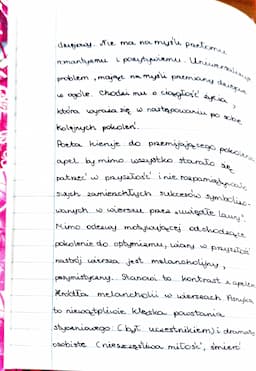 dziejowy. Nie ma na myśli przełomu
romantyzmu i pozytywizmu. Uniwersalizuje
problem, mając na myśli przemiany dziejowe
w ogóle. Chodzi mu o ciągłość życia,
która wyraża się w następowaniu po sobie
kolejnych pokoleń.
Poeta kieruje do przemijającego pokolenia
apel by mimo wszystko starało się
patrzeć w przyszłość i nie rozpamiętywało
swych zamierzchłych sukcesów symbolizo-
wanych w wierszu przez „uwiędłe laury".
Mimo odezwy motywującej odchodzące
pokolenie do optymizmu, wiary w przyszłość
nastrój wiersza jest melancholijny,
pesymistyczny. Stanowi to kontrast z apelem
Źródła melancholii w wierszach Asnyka
to niewątpliwie klęska powstania
styczniowego (był uczestnikiem) i dramaty
osobiste (nieszczęśliwa miłość, śmierć